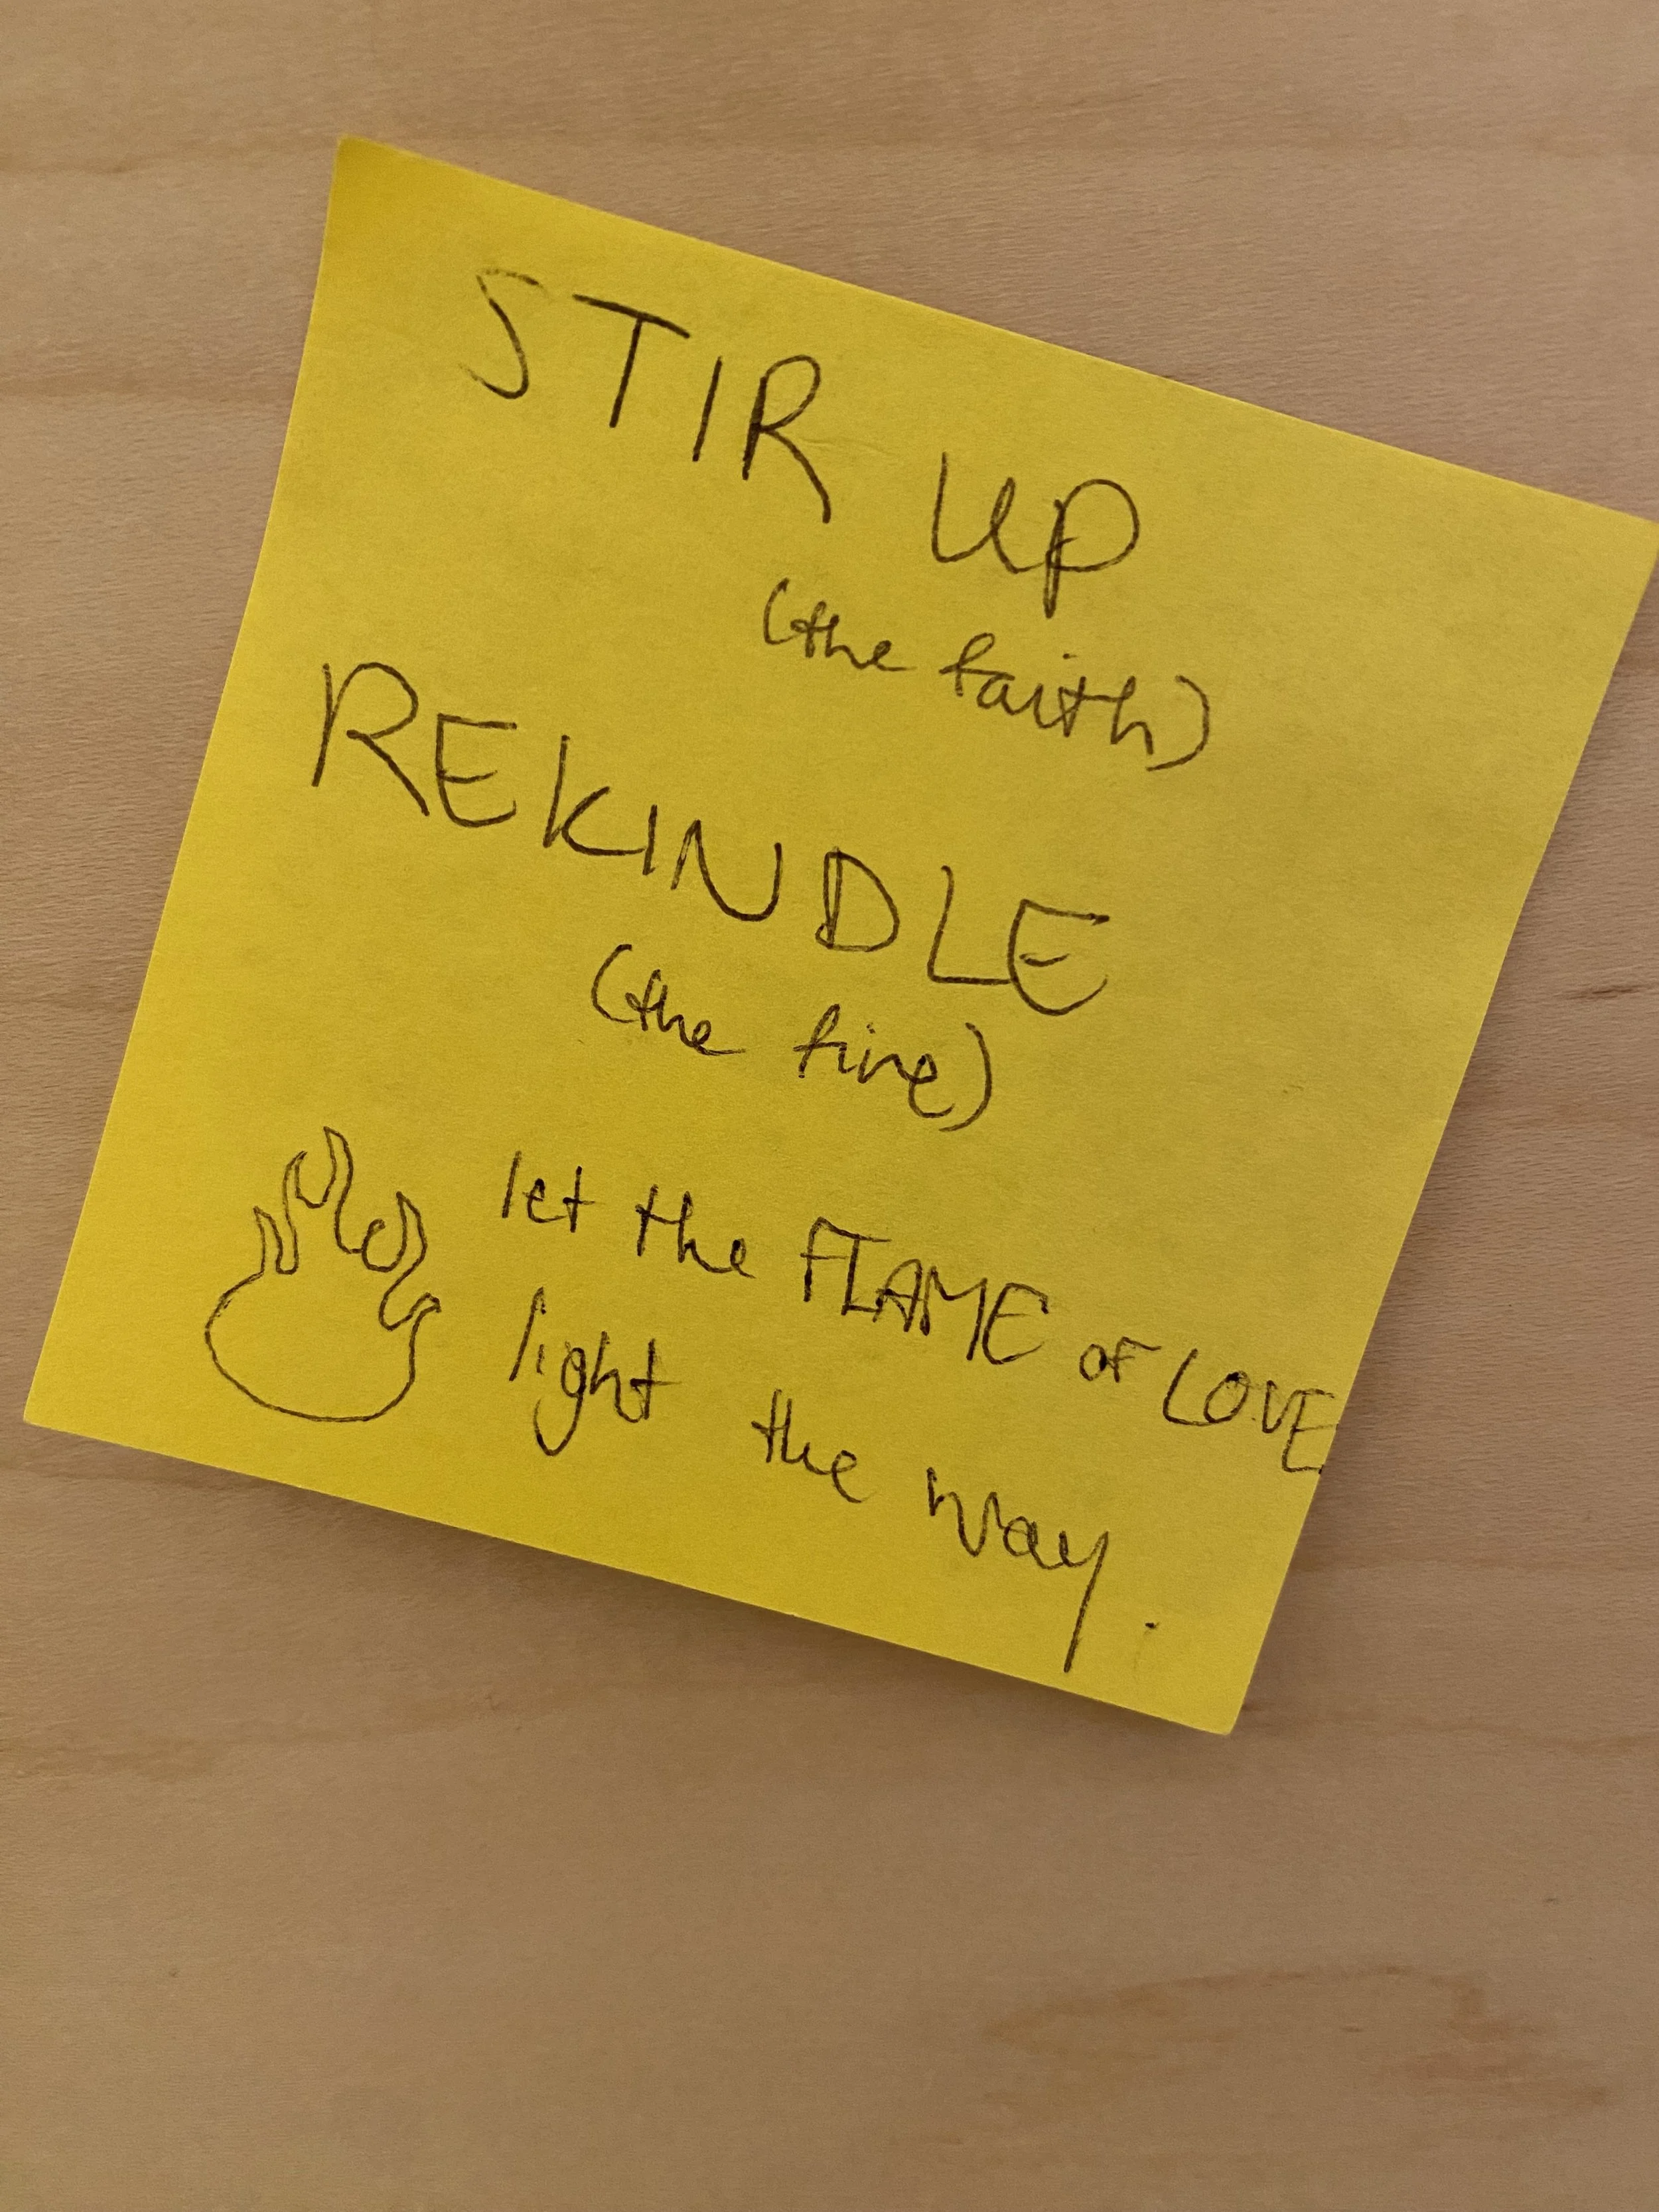 STIR UP
(the faith)
REKINDLE
(the fire)
let the FLAME OF LOVE
light the way.